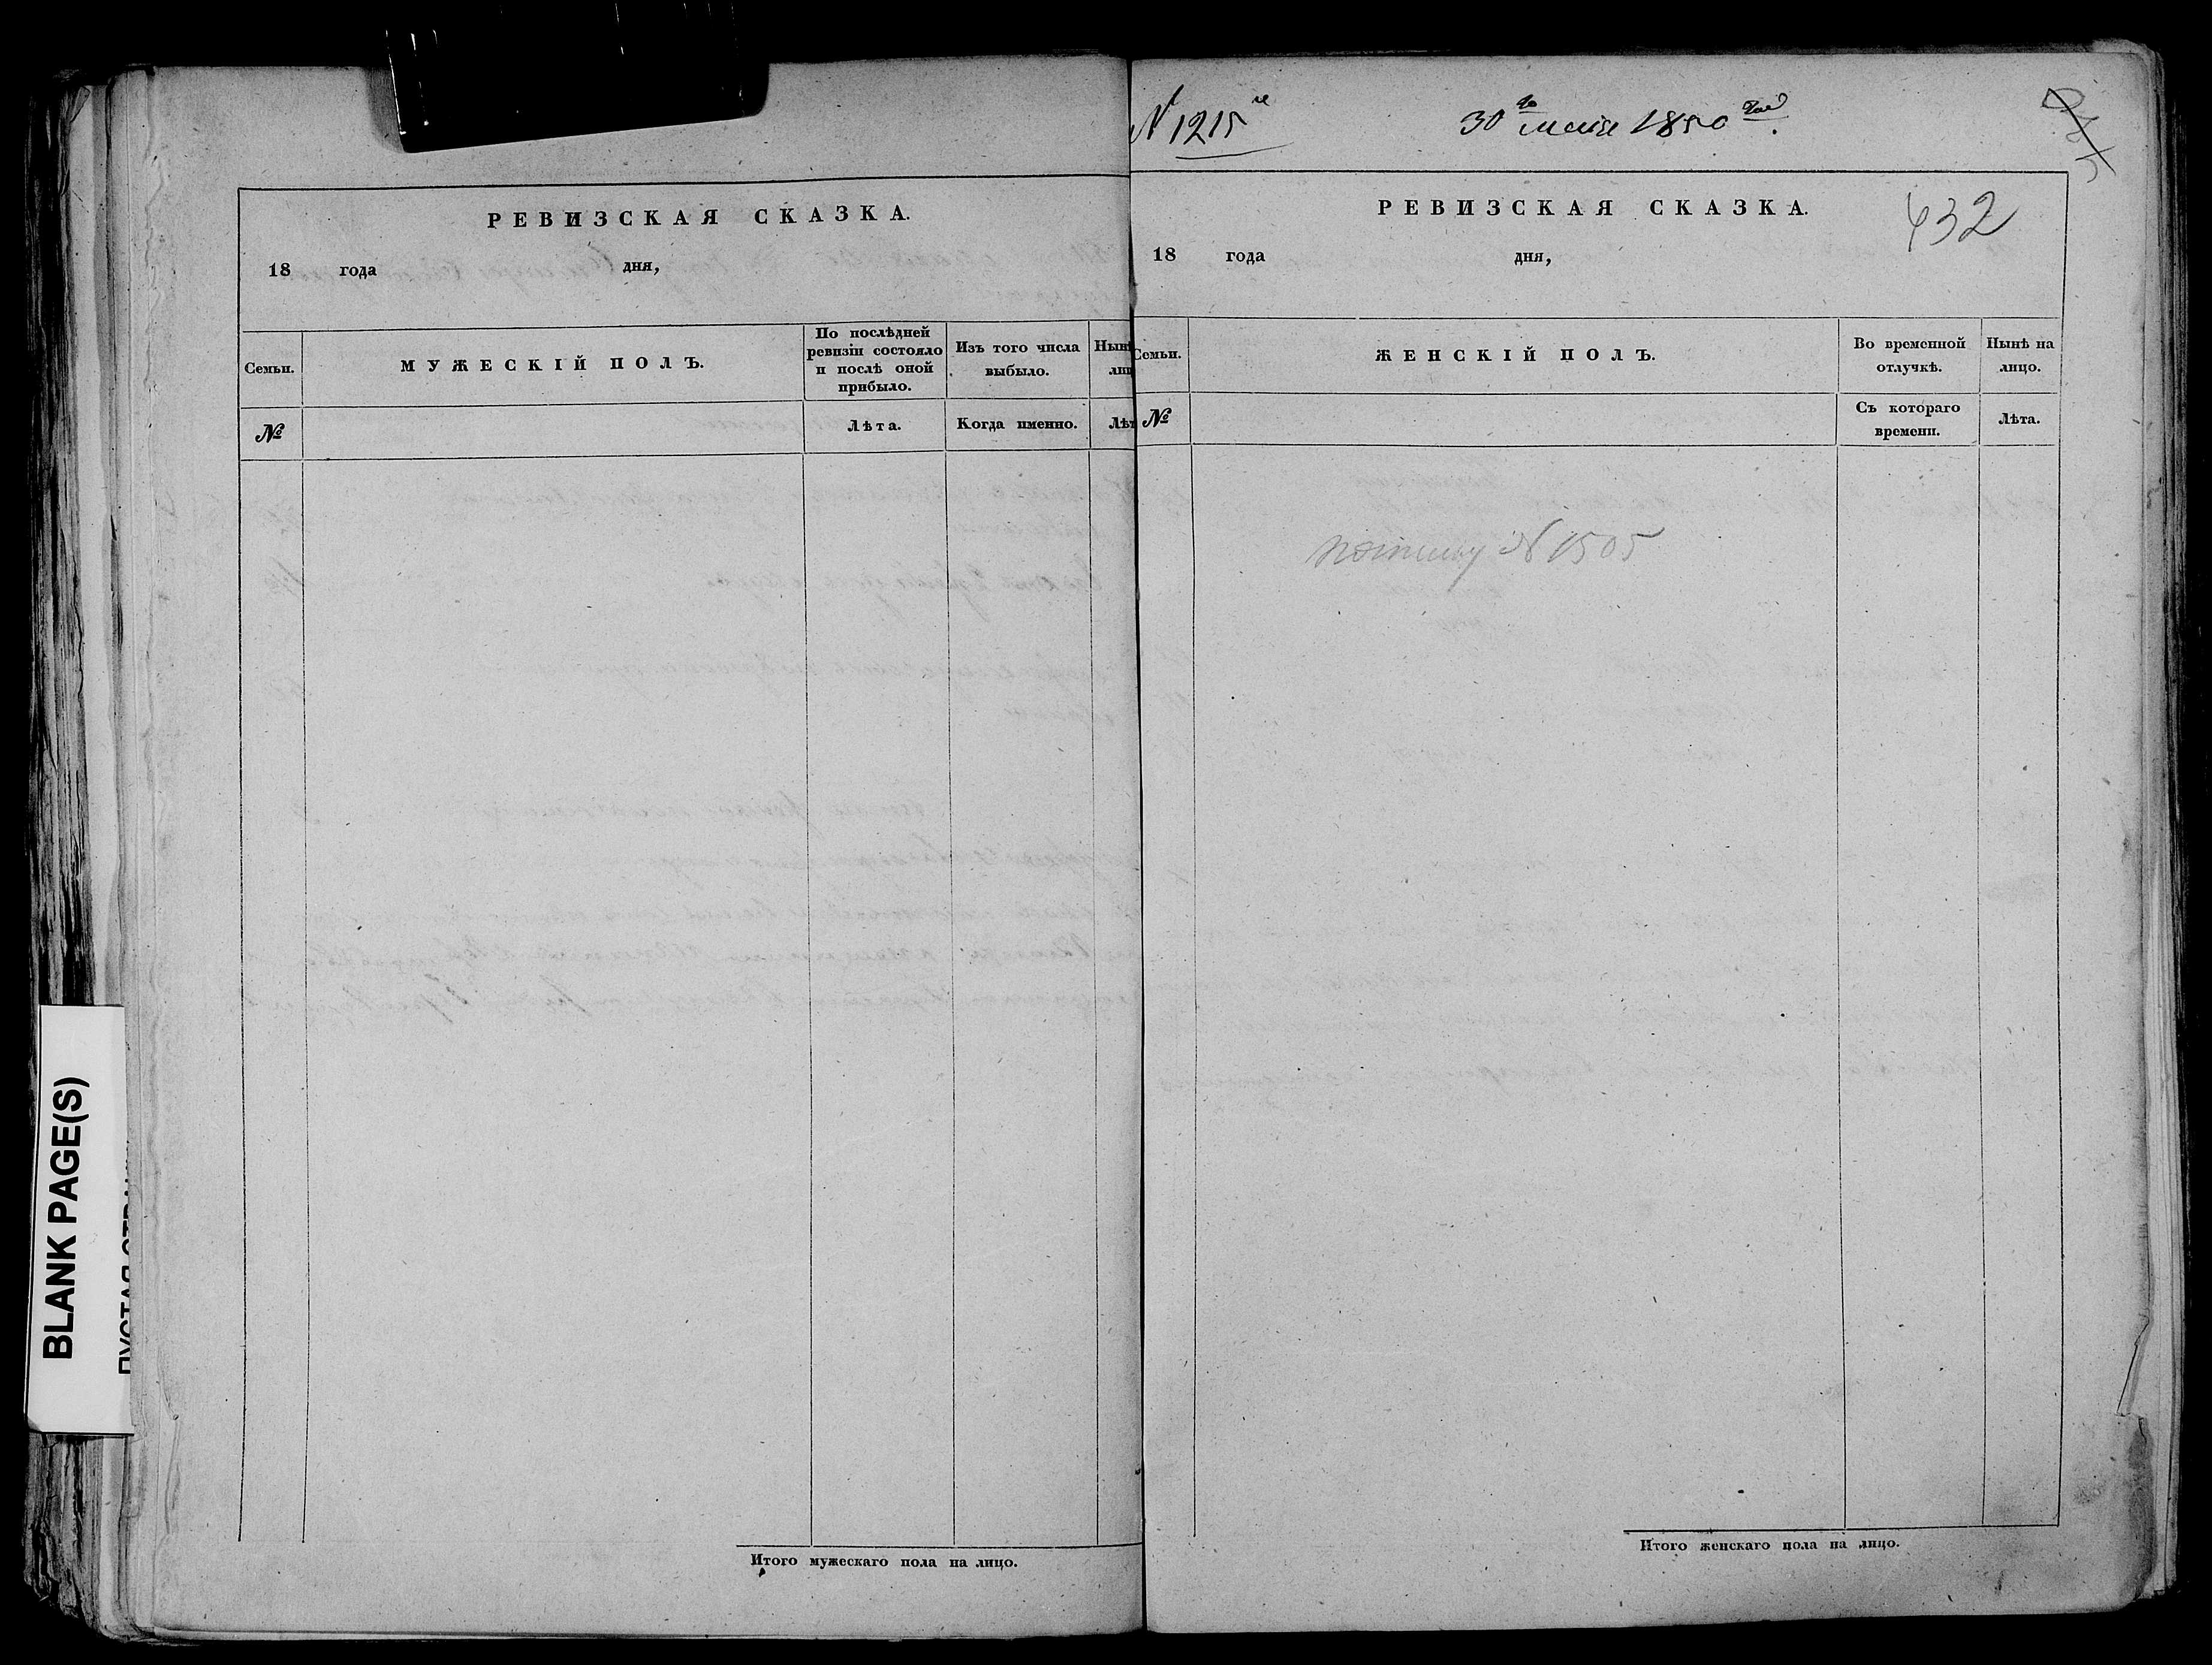 РЕВИЗСКАЯ СКАЗКА.
18 года дня,
Семьи.
МУЖЕСКІЙ ПОЛЪ.
По послѣдней
ревизіи состояло
и послѣ оной
прибыло.
Изъ того числа
выбыло.
Нын
№
Лѣта.
Когда именно.
Лѣт
Итого мужескаго пола на лицо.
N 1215
30го маія 1850 года.
РЕВИЗСКАЯ СКАЗКА.
432
18 года дня,
Семьи.
ЖЕНСКІЙ ПОЛЪ.
Во временной
отлучкѣ.
Нынѣ на
лицо.
№
Съ котораго
времени.
Лѣта.
N 1505
Итого женскаго пола на лицо.
BLANK PAGE(S)